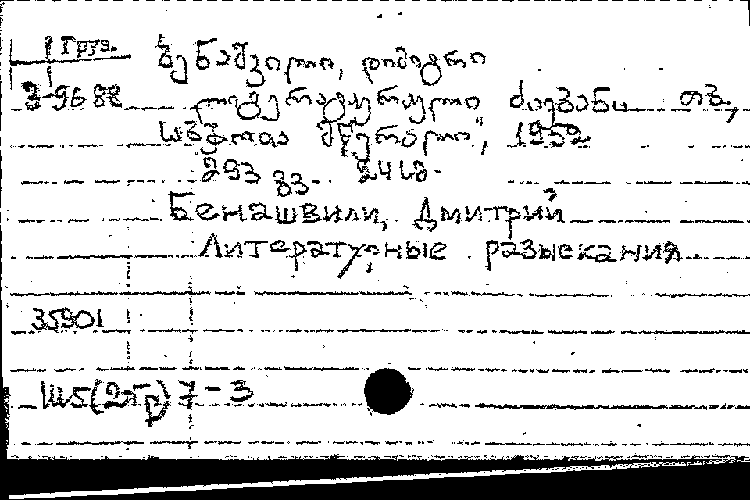 Груз.
ბენაშვილი, დიმიტრი
3-9688 ლიტერატურული ძიებანი თბ,
საბჭოთა მწერალი", 1952
293 გვ. 24 სმ.
Бенашвили, Дмитрий
Литературные разыскания.
35901
Ш5(2=Гр)7-3